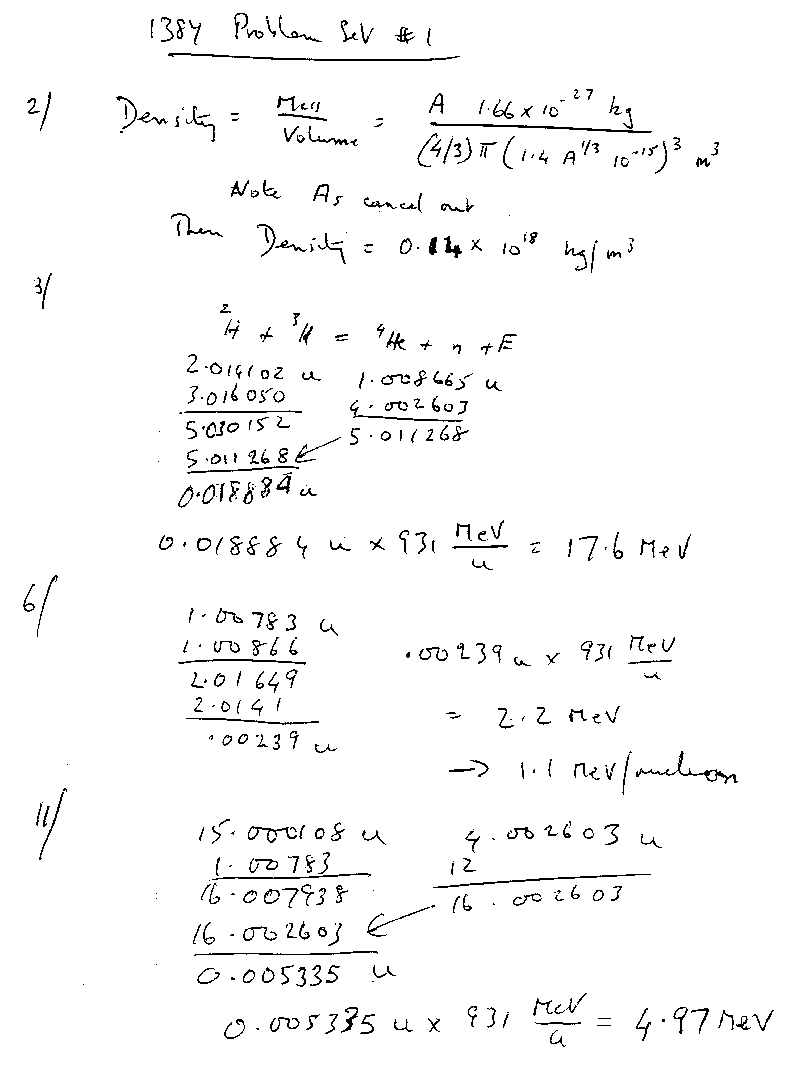 1384 Problem Set #1
2/ Density = Mass/Volume = A 1.66 × 10^-27 kg / (4/3) π (1.4 A^1/3 10^-15)^3 m^3
Note As cancel out
Then Density = 0.14 × 10^18 kg/m^3
3/
^2H + ^3H = ^4He + n + E
2.014102 u 1.008665 u
3.016050 4.002603
5.030152 5.011268
5.011268
0.018884 u
0.018884 u × 931 MeV/u = 17.6 MeV
6/
1.00783 u
1.00866 .00239 u × 931 MeV/u
2.01649
2.0141 = 2.2 MeV
.00239 u
→ 1.1 MeV/nucleon
11/
15.000108 u 4.002603 u
1.00783 12
16.007938 16.002603
16.002603
0.005335 u
0.005335 u × 931 MeV/u = 4.97 MeV